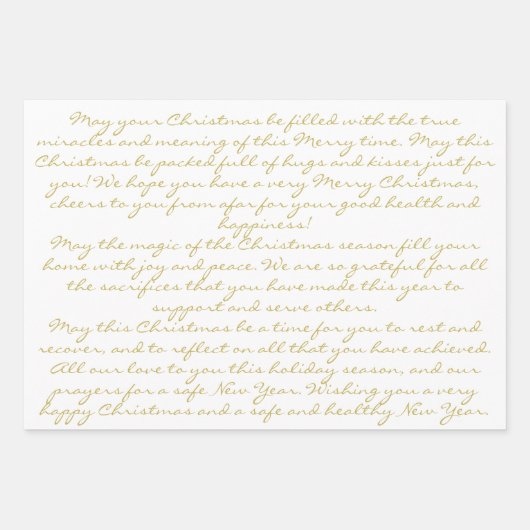 May your Christmas be filled with the true
miracles and meaning of this Merry time. May this
Christmas be packed full of hugs and kisses just for
you! We hope you have a very Merry Christmas,
cheers to you from afar for your good health and
happiness!
May the magic of the Christmas season fill your
home with joy and peace. We are so grateful for all
the sacrifices that you have made this year to
support and serve others.
May this Christmas be a time for you to rest and
recover, and to reflect on all that you have achieved.
All our love to you this holiday season, and our
prayers for a safe New Year. Wishing you a very
happy Christmas and a safe and healthy New Year.